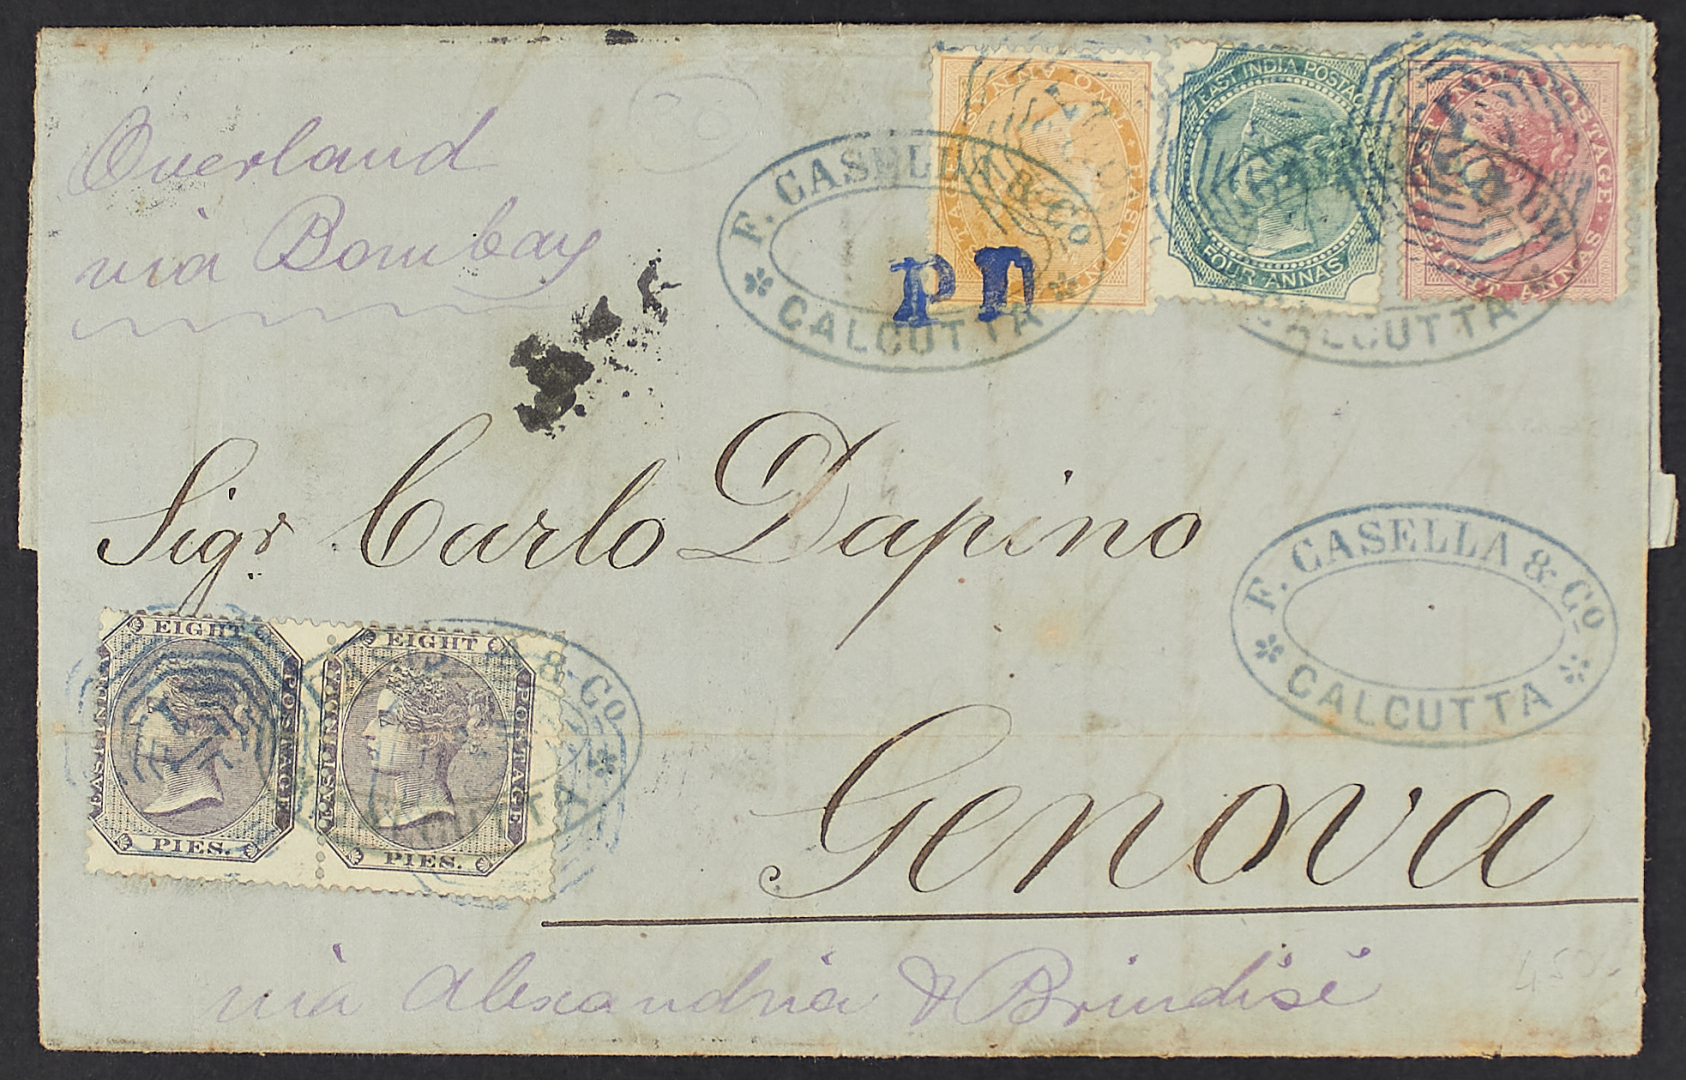 Overland
via Bombay
20
F. CASELLA & Co
CALCUTTA
PD
TWO ANNAS
EAST INDIA POSTAGE
FOUR ANNAS
EAST INDIA POSTAGE
EIGHT ANNAS
CALCUTTA
Sigr Carlo Dapino
F. CASELLA & Co
CALCUTTA
EIGHT
EAST INDIA POSTAGE
PIES.
EIGHT
EAST INDIA POSTAGE
PIES.
& Co
Genova
via Alexandria & Brindisi
450.-